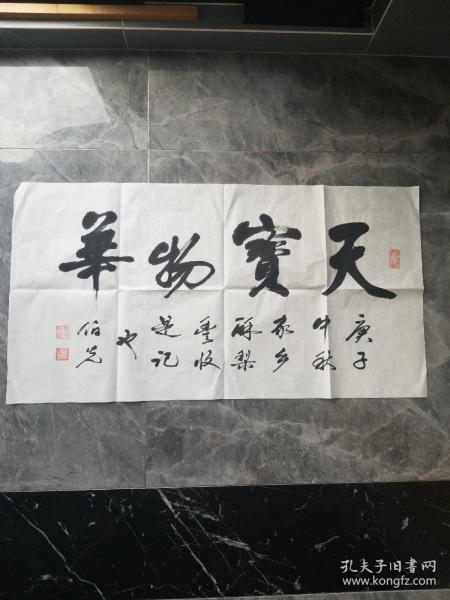 天寶物華
庚子
中秋
家乡
酥梨
豐收
是记
也
伯光
孔夫子旧书网
www.kongfz.com